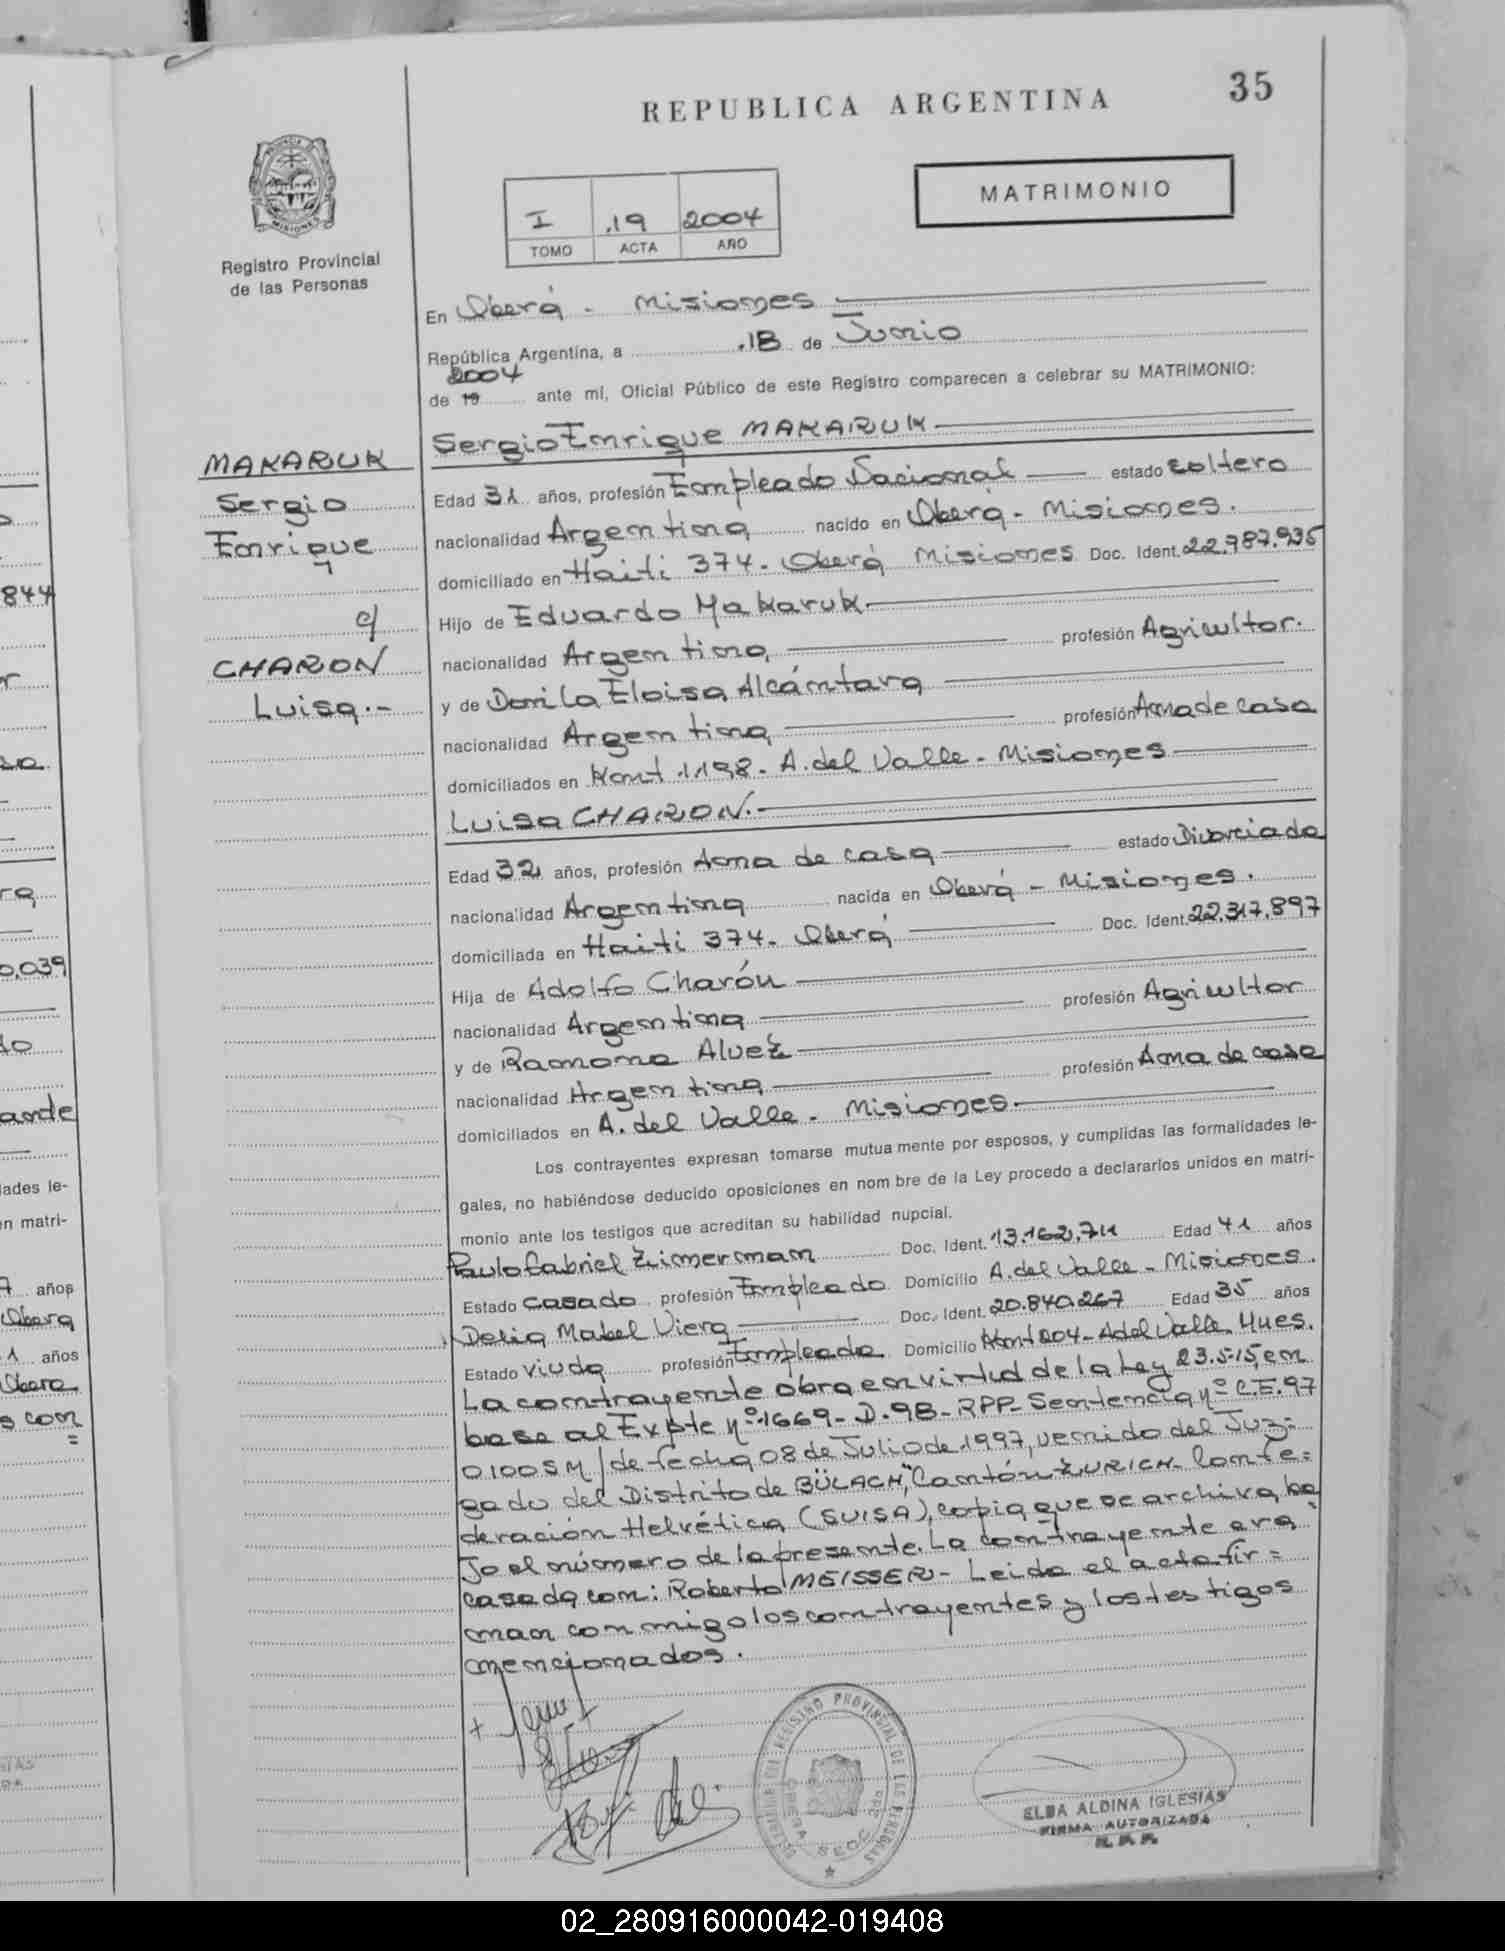 35
REPUBLICA ARGENTINA
MATRIMONIO
I .19 2004
TOMO ACTA AÑO
Registro Provincial
de las Personas
En Oberá - Misiones
República Argentina, a .18 de Junio
2004
de 19 ante mí, Oficial Público de este Registro comparecen a celebrar su MATRIMONIO:
Sergio Enrique MAKARUK
MAKARUK
Sergio
Enrique
c/
CHARON
Luisa.-
Edad 31 años, profesión Empleado Nacional estado soltero
nacionalidad Argentina nacido en Oberá - Misiones.
domiciliado en Haiti 374. Oberá Misiones Doc. Ident. 22.787.935
Hijo de Eduardo Makaruk
nacionalidad Argentina, profesión Agricultor.
y de Domila Eloisa Alcántara
nacionalidad Argentina, profesión Ama de casa
domiciliados en Kont .1198. A. del Valle - Misiones
Luisa CHARON.-
Edad 32 años, profesión Ama de casa estado Divorciada
nacionalidad Argentina nacida en Oberá - Misiones.
domiciliada en Haiti 374. Oberá Doc. Ident. 22.317.897
Hija de Adolfo Charón
nacionalidad Argentina profesión Agricultor
y de Ramona Alvez
nacionalidad Argentina profesión Ama de casa
domiciliados en A. del Valle - Misiones.
Los contrayentes expresan tomarse mutua mente por esposos, y cumplidas las formalidades le-
gales, no habiéndose deducido oposiciones en nom bre de la Ley procedo a declararlos unidos en matri-
monio ante los testigos que acreditan su habilidad nupcial.
Paulo Gabriel Zimerman Doc. Ident. 13.162.711 Edad 41 años
Estado casado profesión Empleado Domicilio A. del Valle - Misiones.
Delia Mabel Viera Doc. Ident. 20.840.267 Edad 35 años
Estado viuda profesión Empleada Domicilio Kont 204 - A del Valle. Mnes.
La contrayente obra en virtud de la Ley 23.515, en
base al Expte nº 1669 - D. 98 - RPP - Sentencia nº C.E.97
0100 SM/ de fecha 08 de Julio de 1997, venido del Juz=
gado del Distrito de BÜLACH, Cantón ZURICH - Confe=
deración Helvética (SUISA), copia que se archiva ba
jo el número de la presente. La contrayente era
casada con: Roberto MEISSER - Leida el acta fir=
man conmigo los contrayentes y los testigos
mencionados.
REGISTRO PROVINCIAL DE LAS PERSONAS
OBERA SECC. 2da
ELBA ALDINA IGLESIAS
FIRMA AUTORIZADA
R.P.P.
844
0,039
ande
lades le-
en matri-
7 años
Obera
1 años
Obera
s con
=
02_280916000042-019408